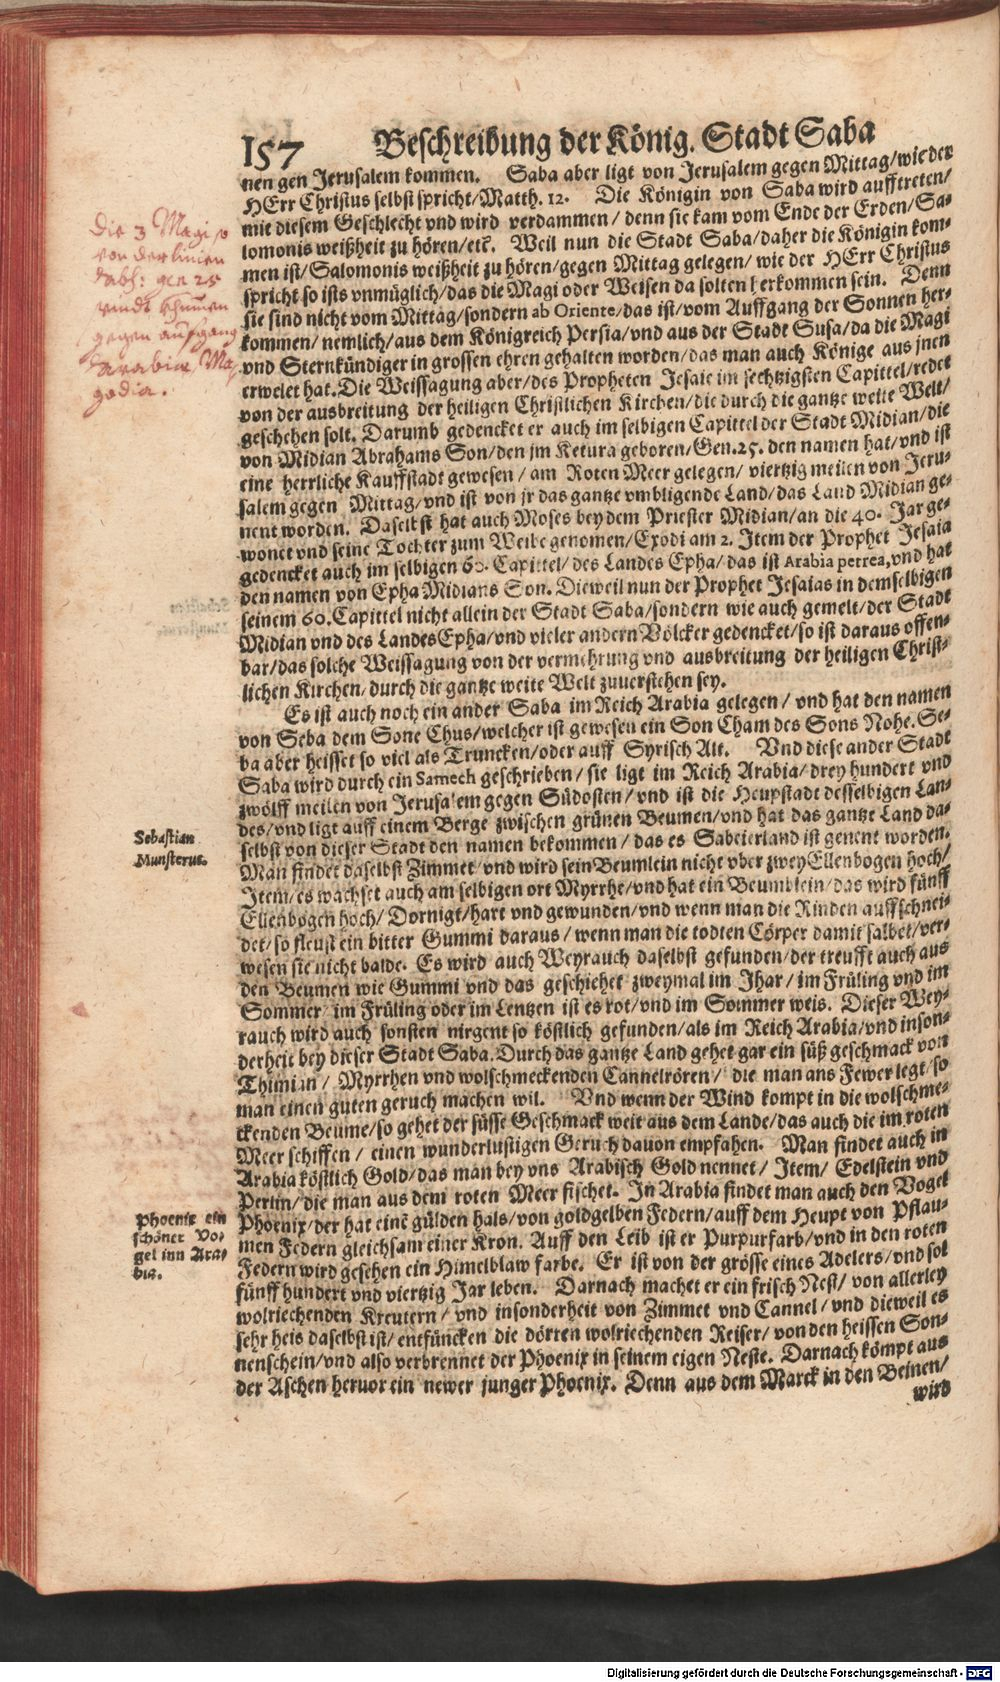 157 Beschreibung der König. Stadt Saba
nen gen Jerusalem kommen. Saba aber ligt von Jerusalem gegen Mittag/wie der
HErr Christus selbst spricht/Matth. 12. Die Königin von Saba wird aufftreten/
mit diesem Geschlecht vnd wird verdammen/ denn sie kam vom Ende der Erden/Sa-
lomonis weißheit zu hören/etc. Weil nun die Stadt Saba/daher die Königin kom-
men ist/Salomonis weißheit zu hören/gegen Mittag gelegen/ wie der HErr Christus
spricht so ists vnmüglich/das die Magi oder Weisen da solten herkommen sein. Denn
sie sind nicht vom Mittag/sondern ab Oriente/das ist/vom Auffgang der Sonnen her-
kommen/nemlich/aus dem Königreich Persia/vnd aus der Stadt Susa/da die Magi
vnd Sternkündiger in grossen ehren gehalten worden/das man auch Könige aus jnen
erwelet hat. Die Weissagung aber/des Propheten Jesaie im sechtzigsten Capittel/redet
von der ausbreitung der heiligen Christlichen Kirchen/die durch die gantze weite Welt/
geschehen solt. Darumb gedencket er auch im selbigen Capittel der Stadt Midian/die
von Midian Abrahams Son/den jm Ketura geboren/Gen.25. den namen hat/vnd ist
eine herrliche Kauffstadt gewesen/ am Roten Meer gelegen/ viertzig meilen von Jeru-
salem gegen Mittag/vnd ist von jr das gantze vmbligende Land/das Land Midian ge-
nent worden. Daselbst hat auch Moses bey dem Priester Midian/an die 40. Jar ge-
wonet vnd seine Tochter zum Weibe genomen/Exodi am 2. Item der Prophet Jesaia
gedencket auch im selbigen 60. Capittel/ des Landes Epha/das ist Arabia petrea,vnd hat
den namen von Epha Midians Son. Dieweil nun der Prophet Jesaias in demselbigen
seinem 60. Capittel nicht allein der Stadt Saba/sondern wie auch gemelt/der Stadt
Midian vnd des Landes Epha/vnd vieler andern Völcker gedencket/so ist daraus offen-
bar/das solche Weissagung von der vermehrung vnd ausbreitung der heiligen Christ-
lichen Kirchen/durch die gantze weite Welt zuuerstehen sey.
Es ist auch noch ein ander Saba im Reich Arabia gelegen/ vnd hat den namen
von Seba dem Sone Chus/welcher ist gewesen ein Son Cham des Sons Nohe. Se-
ba aber heisset so viel als Truncken/oder auff Syrisch Alt. Vnd diese ander Stadt
Saba wird durch ein Samech geschrieben/ sie ligt im Reich Arabia/drey hundert vnd
zwölff meilen von Jerusalem gegen Südosten/ vnd ist die Heuptstadt desselbigen Lan-
des/vnd ligt auff einem Berge zwischen grünen Beumen/vnd hat das gantze Land da-
selbst von dieser Stadt den namen bekommen/das es Sabeierland ist genent worden.
Man findet daselbst Zimmet/vnd wird sein Beumlein nicht vber zwey Ellenbogen hoch/
Item/es wachset auch am selbigen ort Myrrhe/vnd hat ein Beumblein/das wird fünff
Ellenbogen hoch/ Dornigt/hart vnd gewunden/vnd wenn man die Rinden auffschnei-
det/so fleust ein bitter Gummi daraus/ wenn man die todten Cörper damit salbet/ver-
wesen sie nicht balde. Es wird auch Weyrauch daselbst gefunden/der treufft auch aus
den Beumen wie Gummi vnd das geschiehet zweymal im Jhar/im Früling vnd im
Sommer/ im Früling oder im Lentzen ist es rot/vnd im Sommer weis. Dieser Wey-
rauch wird auch sonsten nirgent so köstlich gefunden/als im Reich Arabia/vnd inson-
derheit bey dieser Stadt Saba. Durch das gantze Land gehet gar ein süß geschmack von
Thimian/ Myrrhen vnd wolschmeckenden Cannelrören/ die man ans Fewer legt/so
man einen guten geruch machen wil. Vnd wenn der Wind kompt in die wolschme-
ckenden Beume/so gehet der süsse Geschmack weit aus dem Lande/das auch die im roten
Meer schiffen/ einen wunderlustigen Geruch dauon empfahen. Man findet auch in
Arabia köstlich Gold/das man bey vns Arabisch Gold nennet/ Item/ Edelstein vnd
Perlin/die man aus dem roten Meer fischet. In Arabia findet man auch den Vogel
Phoenix/der hat einē gülden hals/von goldgelben Federn/auff dem Heupt von Pflau-
men Federn gleichsam einer Kron. Auff den Leib ist er Purpurfarb/vnd in den roten
Federn wird gesehen ein Himelblaw farbe. Er ist von der grösse eines Adelers/vnd sol
fünff hundert vnd viertzig Jar leben. Darnach machet er ein frisch Nest/ von allerley
wolriechenden Kreutern/ vnd insonderheit von Zimmet vnd Cannel/vnd dieweil es
sehr heis daselbst ist/entfüncken die dörren wolriechenden Reiser/von den heissen Son-
nenschein/vnd also verbrennet der Phoenix in seinem eigen Neste. Darnach kömpt aus
der Aschen heruor ein newer junger Phoenix. Denn aus dem Marck in den Beinen/
wird
Die 3 Magi so
von der linien
Gen 25
kummen
gegen aufgang
Arabia
Sebastian
Munsterus.
Phoenix ein
schöner Vo-
gel inn Ara-
bia.
Digitalisierung gefördert durch die Deutsche Forschungsgemeinschaft - DFG